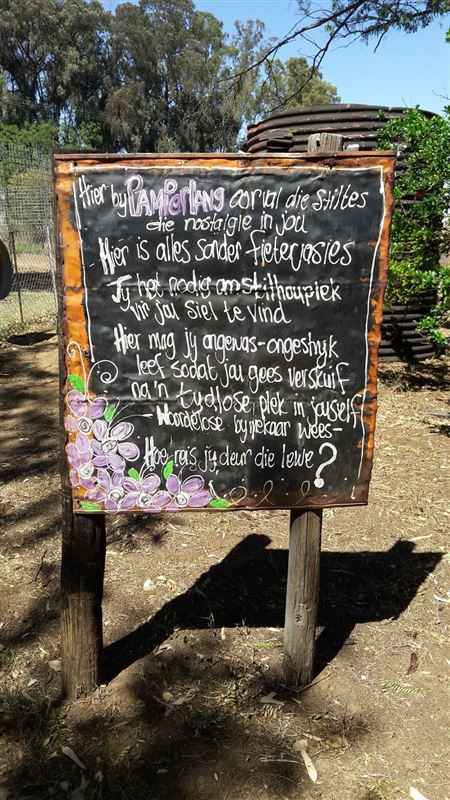 Hier by PAMPERLANG oorval die stiltes
die nostalgie in jou
Hier is alles sonder fieterjasies
Jy het nodig om stilhouplek
vir jou siel te vind
Hier mag jy ongewas-ongestryk
leef sodat jou gees verskuif
na 'n tydlose plek in jouself
- Woordelose bymekaar wees -
Hoe reis jy deur die lewe?